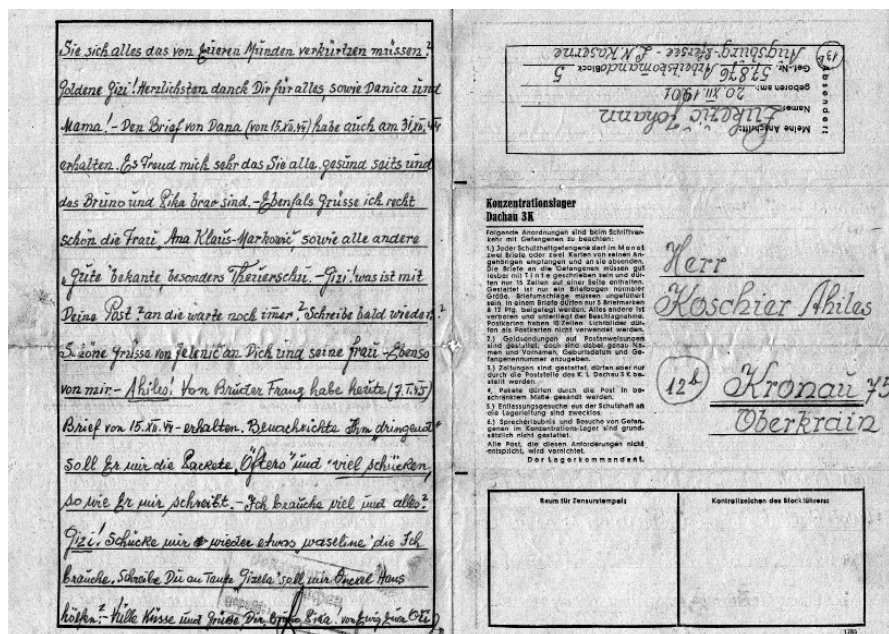 Sie sich alles das von Eueren Munden verkürtzen müssen?
Goldene Gizi! Herzlichsten danck Dir für alles, sowie Danica und
Mama! - Den Brief von Dana (von 15.XII.44) habe auch am 31.XII.44
erhalten. Es Freud mich sehr das Sie alle gesund seits und
das Bruno und Pika brav sind. - Ebenfals Grüsse ich recht
schön die Frau Ana Klaus-Marković sowie alle andere
"gute" bekante, besonders Theuerschu. - Gizi! was ist mit
Deine Post? an die warte noch imer? Schreibe bald wieder?
Schöne Grüsse von Jelenić an Dich und seine frau - Ebenso
von mir - Ahiles! Von Brüder Franz habe heute (7.I.45)
Brief von 15.XII.44 - erhalten. Benachrichte Ihm "dringend"
soll Er mir die Packete "Öfters" und "viel schücken,
so wie Er mir schreibt. - Ich brauche viel und alles?
Gizi! Schücke mir wieder etwas "waseline" die Ich
brauche. Schreibe Du an Tante "Gizela" soll mir Onckel Hans
hölfen? - Ville Küsse und Grüße Dir Pika! von Ewig Euer
Absender:
Meine Anschrift:
Name: Zukezić Johann
geboren am: 20. XII. 1901
Gef.-Nr. 57.876 Arbeitskomando Block 5
Augsburg-Pfersee - L.N. Kaserne
13b
Konzentrationslager
Dachau 3K
Folgende Anordnungen sind beim Schriftver-
kehr mit Gefangenen zu beachten:
1.) Jeder Schutzhaftgefangene darf im Monat
zwei Briefe oder zwei Karten von seinen An-
gehörigen empfangen und an sie absenden.
Die Briefe an die Gefangenen müssen gut
lesbar mit Tinte geschrieben sein und dür-
fen nur 15 Zeilen auf einer Seite enthalten.
Gestattet ist nur ein Briefbogen normaler
Größe. Briefumschläge müssen ungefüttert
sein. In einem Briefe dürfen nur 5 Briefmarken
à 12 Pfg. beigelegt werden. Alles andere ist
verboten und unterliegt der Beschlagnahme.
Postkarten haben 10 Zeilen. Lichtbilder dür-
fen als Postkarten nicht verwendet werden.
2.) Geldsendungen auf Postanweisungen
sind gestattet, doch sind dabei genau Na-
men und Vornamen, Geburtsdatum und Ge-
fangenennummer anzugeben.
3.) Zeitungen sind gestattet, dürfen aber nur
durch die Poststelle des K. L. Dachau 3K be-
stellt werden.
4. Pakete dürfen durch die Post in be-
schränktem Maße gesandt werden.
5.) Entlassungsgesuche aus der Schutzhaft an
die Lagerleitung sind zwecklos.
6.) Sprecherlaubnis und Besuche von Gefan-
genen im Konzentrations-Lager sind grund-
sätzlich nicht gestattet.
Alle Post, die diesen Anforderungen nicht
entspricht, wird vernichtet.
Der Lagerkommandant.
Herr
Koschier Ahiles
12b
Kronau 75
Oberkrain
Raum für Zensurstempel:
Kontrollzeichen des Blockführers:
1285